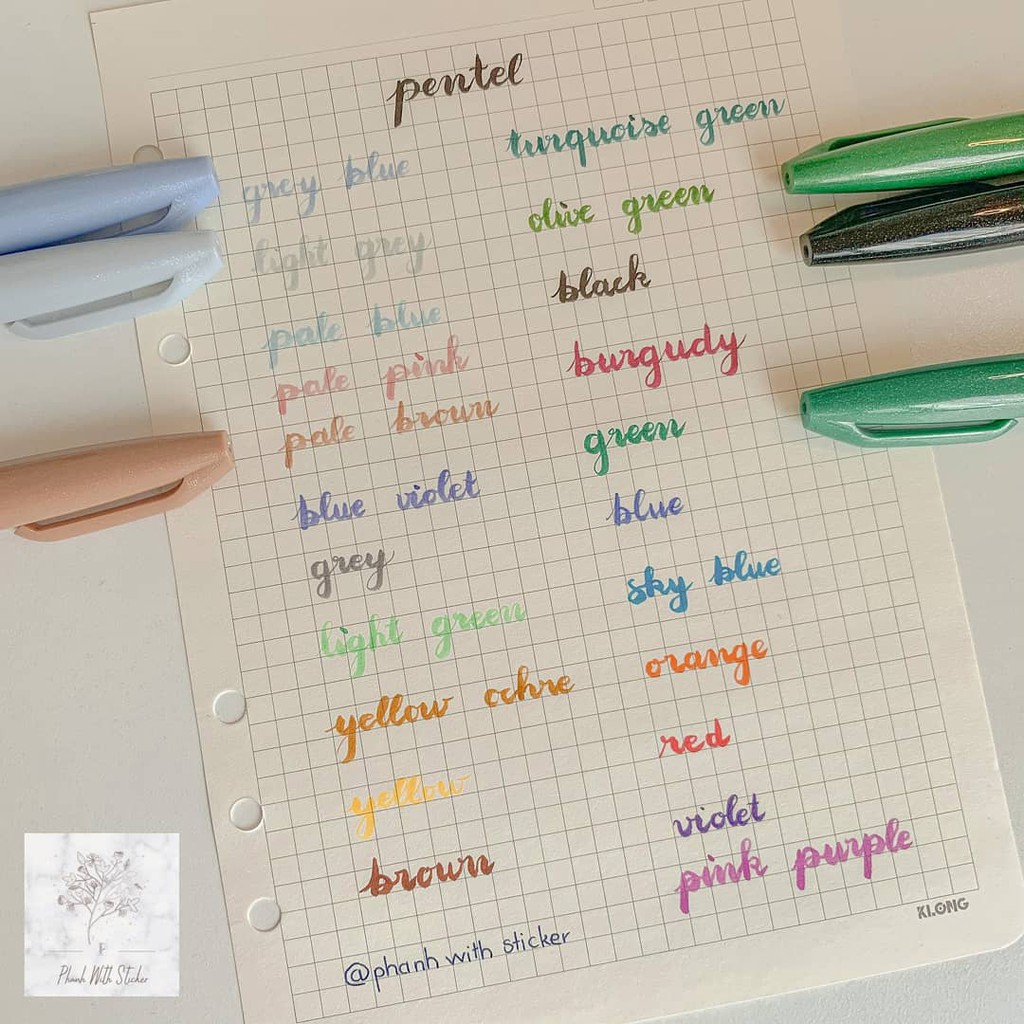 pentel
grey blue
light grey
pale blue
pale pink
pale brown
blue violet
grey
light green
yellow ochre
yellow
brown
turquoise green
olive green
black
burgudy
green
blue
sky blue
orange
red
violet
pink purple
@phanh with sticker
KLONG
P
Phanh With Sticker